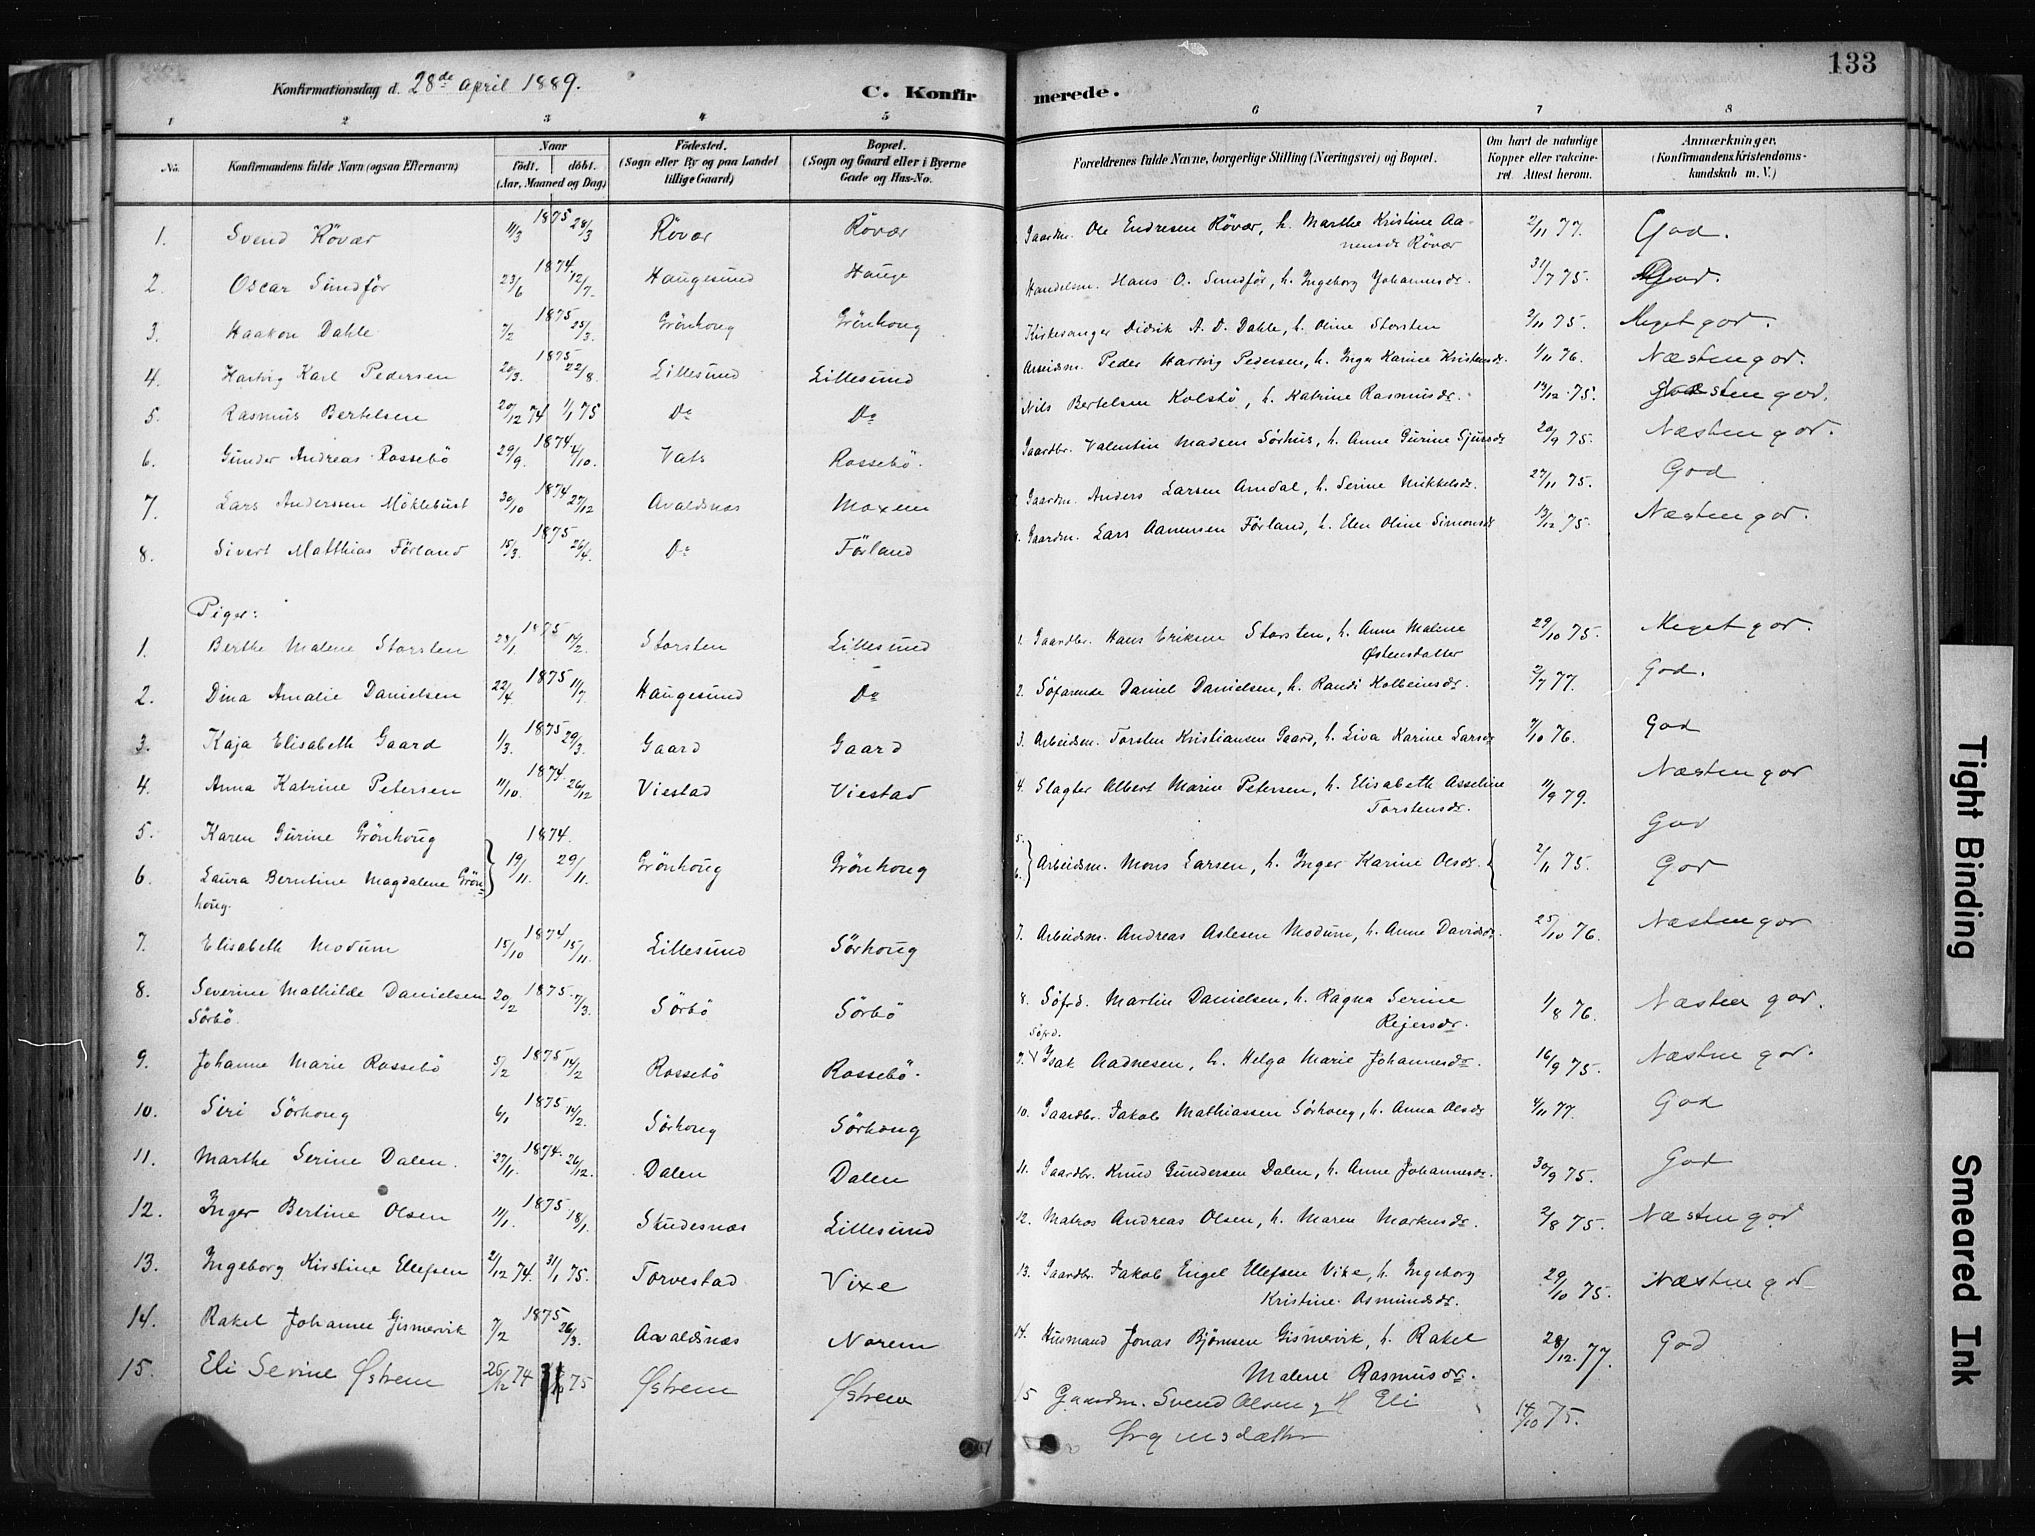 133
Konfirmationsdag d. 28de April 1889.
C. Konfirmerede.
1 2 3 4 5 6 7 8
No. Konfirmandens fulde Navn (ogsaa Efternavn) Naar født. døbt. (Aar, Maaned og Dag) Fødested. (Sogn eller By og paa Landet tillige Gaard) Bopæl. (Sogn og Gaard eller i Byerne Gade og Hus-No. Forældrenes fulde Navne, borgerlige Stilling (Næringsvei) og Bopæl. Om havt de naturlige Kopper eller vakcineret. Attest herom. Anmærkninger. (Konfirmandens Kristendomskundskab m. V.)
1. Svend Røvær 11/3 1875 28/3 Røvær Røvær Gaardm. Ole Endresen Røvær, h. Marthe Kristine Aanensdr Røvær 2/11 77. God.
2. Oscar Sundfør 23/6 1874. 12/7. Haugesund Hauge Handelsm. Hans O. Sundfør, h. Ingeborg Johannesdr. 31/7 75. God.
3. Haakon Dahle 7/2 1875 25/3. Grönhoug Grönhoug Kirkesanger Didrik A. D. Dahle, h. Oline Storsten 2/11 75. Meget god.
4. Hartvig Karl Pedersen 20/3. 1875 22/8. Lillesund Lillesund Arbeidsm. Peder Hartvig Pedersen, h. Inga Karine Kristensdr. 1/11 76. Næsten god.
5. Rasmus Bertelsen 20/12 74 1/1 75 Do Do Nils Bertelsen Kolstø, h. Katrine Rasmusdr. 13/12 75. Næsten god.
6. Gunder Andreas Rossebö 29/9. 1874. 4/10. Vats Rossebö. Gaardbr. Valentin Madsen Sørhus, h. Anne Gurine Sjursdr 20/9 75. Næsten god.
7. Lars Anderssen Möklebust 30/10 1874 27/12 Avaldsnæs Moxem Gaardm. Anders Larsen Amdal, h. Serine Mikkelsdr. 27/11 75. God
8. Sivert Matthias Förland 15/3. 1875 26/4. Do Förland Gaardm. Lars Aanensen Förland, h. Elen Oline Simonsdr 13/12 75. Næsten god.
Piger:
1. Berthe Malene Storsten 23/1. 1875 14/2. Storsten Lillesund 1. Gaardbr. Hans Eriksen Storsten, h. Anne Maline Østensdatter 29/10 75. Meget god.
2. Dina Amalie Danielsen 22/4 1875 11/7. Haugesund Do 2. Søfarende Daniel Danielsen, h. Randi Kolbeinsdr. 2/7 77. God.
3. Kaja Elisabeth Gaard 1/3. 1875 29/3. Gaard Gaard 3. Arbeidsm. Torsten Kristiansen Gaard, h. Liva Karine Larsdr 7/10 76. God
4. Anna Katrine Petersen 11/10. 1874. 26/12 Viestad Viestad 4. Slagter Albert Marin Petersen, h. Elisabeth Asseline Torstensdr. 11/9 79. Næsten god
5. Karen Gurine Grönhoug 1874. God
6. Laura Berntine Magdalene Grönhoug. 19/11. 29/11. Grönhoug Grönhoug 5. 6. Arbeidsm. Mons Larsen, h. Inger Karine Olsdr. 2/11 75. God
7. Elisabeth Modum 15/10 1874 15/11. Lillesund Sörhoug 7. Arbeidsm. Andreas Aslesen Modum, h. Anne Davidsdr. 25/10 76. Næsten god
8. Severine Mathilde Danielsen Sörbö. 20/2 1875. 7/3. Sörbö Sörbö 8. Söfrd. Martin Danielsen, h. Ragna Serine Rejersdr. 1/8 76. Næsten god.
9. Johanne Marie Rossebö 5/2 1875 14/2 Rossebö Rossebö. 9. Söfrd. Isak Aadnesen, h. Helga Marie Johannesdr. 16/9 75. Næsten god.
10. Siri Sörhoug 6/1 1875 14/2. Sörhoug Sörhoug 10. Gaardbr. Jakob Mathiassen Sörhoug, h. Anna Olsdr 4/11 77. God
11. Marthe Serine Dalen. 27/11. 1874. 26/12. Dalen Dalen 11. Gaardbr. Knud Gundersen Dalen, h. Anne Johannesdr. 30/9 75. God
12. Inger Bertine Olsen 11/1. 1875 18/1. Skudesnæs Lillesund 12. Matros Andreas Olsen, h. Maren Markusdr. 2/8 75. Næsten god
13. Ingeborg Kirstine Ellefsen 2/12 74. 31/1 75. Torvestad Vixe 13. Gaardbr. Jakob Engel Ellefsen Vixe, h. Ingeborg Kristine Asmundsdr. 29/10 75. Næsten god
14. Rakel Johanne Gismervik 7/2 1875 26/3. Avaldsnæs Norem 14. Husmand Jonas Bjørnsen Gismervik, h. Rakel Malene Rasmusdr. 28/12. 77. God
15. Eli Sevine Østrem 26/12 74 75 Østrem Østrem 15 Gaardm. Svend Olsen g H Eli 14/10 75.
Tight Binding
Smeared Ink